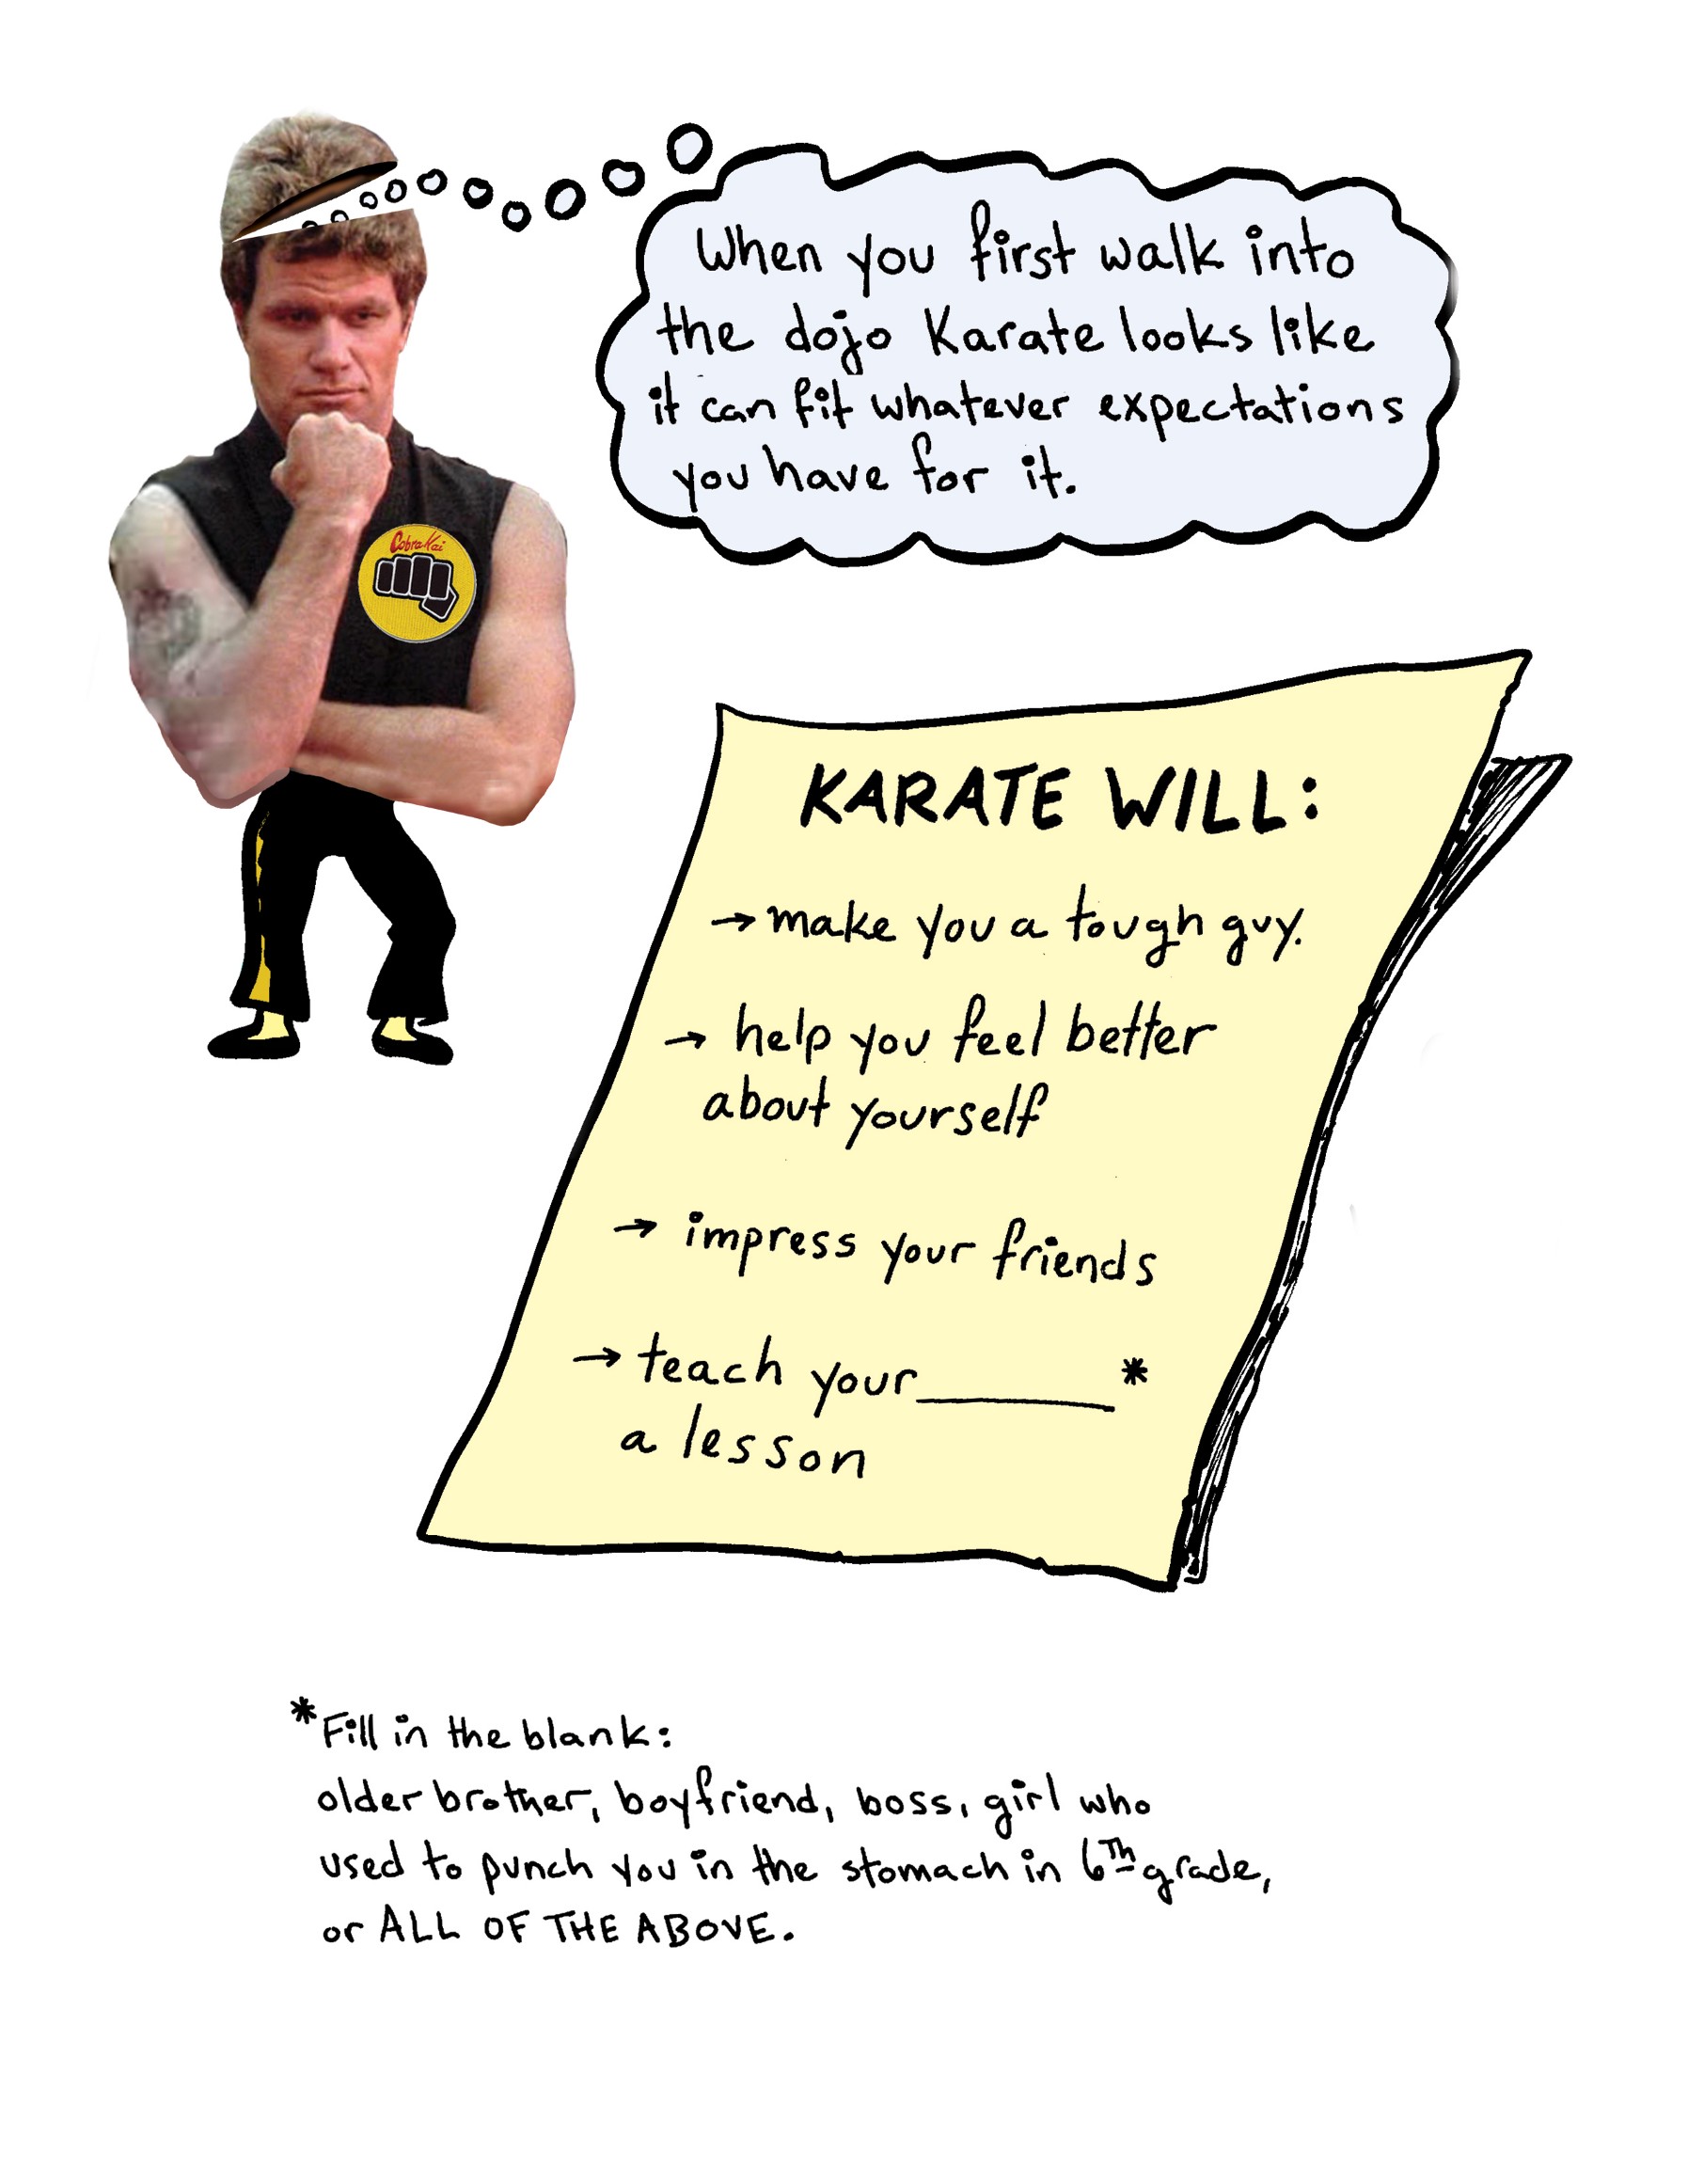 When you first walk into
the dojo Karate looks like
it can fit whatever expectations
you have for it.
Cobra Kai
KARATE WILL:
→ make you a tough guy.
→ help you feel better
about yourself
→ impress your friends
→ teach your ______ *
a lesson
* Fill in the blank:
older brother, boyfriend, boss, girl who
used to punch you in the stomach in 6th grade,
or ALL OF THE ABOVE.